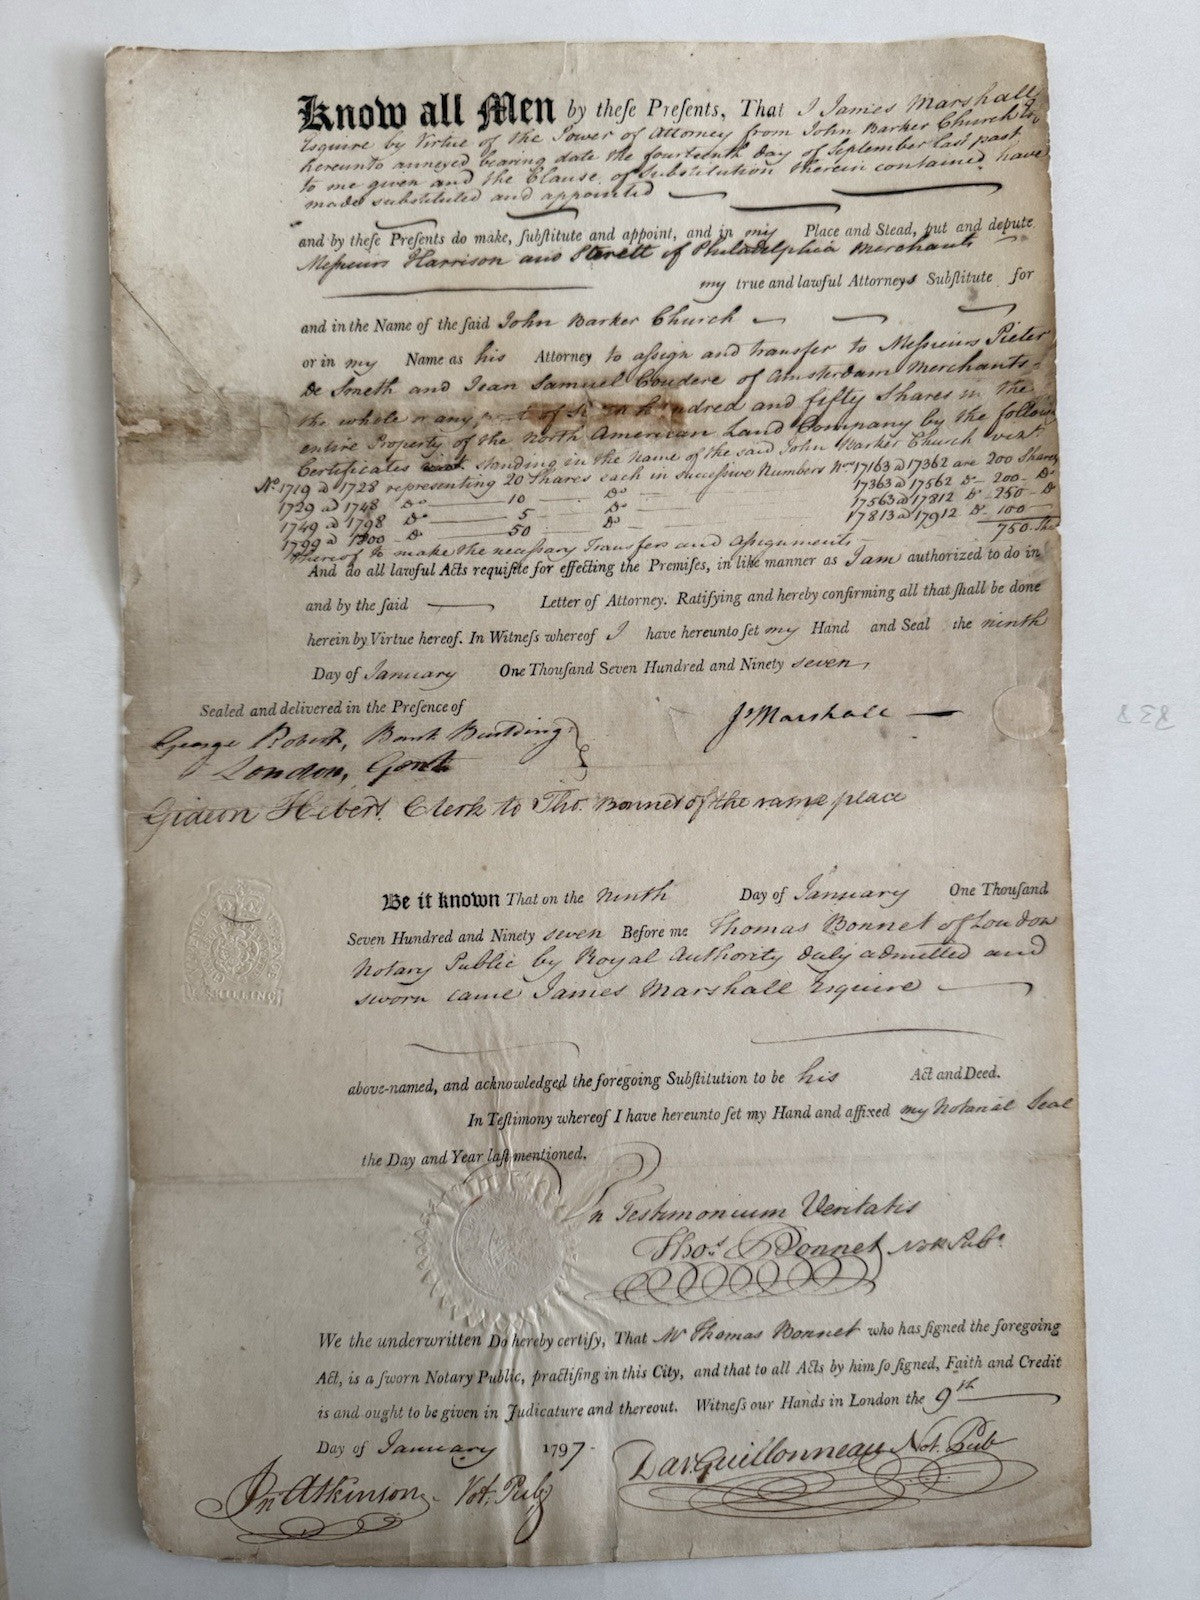 Know all Men by theſe Preſents, That I James Marshall
Esquire by Virtue of the Power of Attorney from John Barker Church Esqr
hereunto annexed bearing date the fourteenth day of September last past
to me given and the Clause of Substitution therein contained have
made substituted and appointed
and by theſe Preſents do make, ſubſtitute and appoint, and in my Place and Stead, put and depute
Meſsieurs Harrison and Sterett of Philadelphia Merchants
my true and lawful Attorneys Subſtitute for
and in the Name of the ſaid John Barker Church
or in my Name as his Attorney to aſsign and transfer to Meſsieurs Pieter
De Smeth and Jean Samuel Couderc of Amsterdam Merchants
the whole or any part of Seven hundred and fifty Shares in the
entire Property of the North American Land Company by the follow
Certificates standing in the name of the said John Barker Church vizt
No. 1719 a 1728 representing 20 Shares each in succeſsive Numbers Nos 17163 a 17362 are 200 Shares
1729 a 1748 Do 10 Do 17363 a 17562 Do 200 Do
1749 a 1798 Do 5 Do 17563 a 17812 Do 250 Do
1799 a 1800 Do 50 Do 17813 a 17912 Do 100
750 Sha
thereof to make the neceſsary Transfers and aſsignments
And do all lawful Acts requiſite for effecting the Premiſes, in like manner as I am authorized to do in
and by the ſaid Letter of Attorney. Ratifying and hereby confirming all that ſhall be done
herein by Virtue hereof. In Witneſs whereof I have hereunto ſet my Hand and Seal the ninth
Day of January One Thouſand Seven Hundred and Ninety seven,
Sealed and delivered in the Preſence of
Js Marshall
George Robert, Bank Buildings
London, Gent
Gideon Hebert, Clerk to Tho. Bonnet of the same place
Be it known That on the ninth Day of January One Thouſand
Seven Hundred and Ninety seven Before me Thomas Bonnet of London
Notary Public by Royal Authority duly admitted and
sworn came James Marshall Esquire
SHILLING
above-named, and acknowledged the foregoing Subſtitution to be his Act and Deed.
In Teſtimony whereof I have hereunto ſet my Hand and affixed my Notarial Seal
the Day and Year laſt mentioned.
In Testimonium Veritatis
Thos. Bonnet Not Pubc
We the underwritten Do hereby certify, That Mr Thomas Bonnet who has ſigned the foregoing
Act, is a ſworn Notary Public, practiſing in this City, and that to all Acts by him ſo ſigned, Faith and Credit
is and ought to be given in Judicature and thereout. Witneſs our Hands in London the 9th
Day of January 1797-
Jn Atkinson Not. Pub
Dav Guillonneau Not. Pub